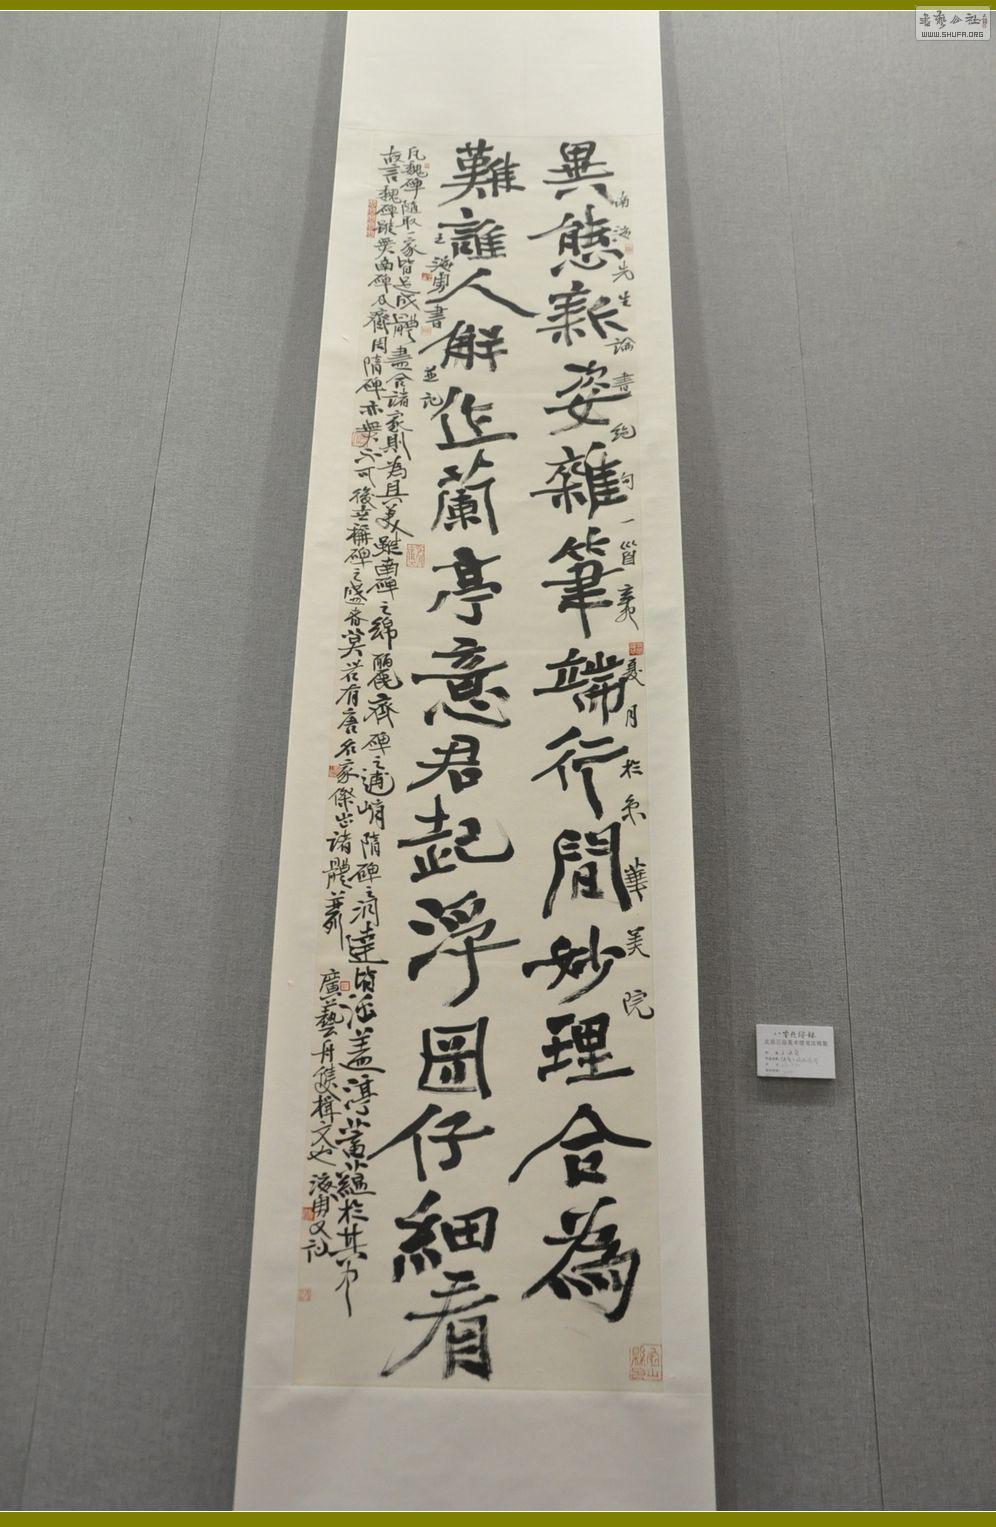 異態新姿雜筆端行間妙理合為
難離人解作蘭亭意君起淨圖仔細看
南海先生論書絕句一首
夏月於京華美院
王海勇書並記
凡魏碑隨取一家皆足成體盡合諸家則為具美雖南碑之綿麗齊碑之逋峭隋碑之洞達皆涵蓋渟蓄蘊於其中
故言魏碑雖無南碑及齊周隋碑亦無不可後世稱碑之盛者莫若有唐名家傑出諸體並
廣藝舟雙楫文也海勇又記
書藝公社
WWW.SHUFA.ORG